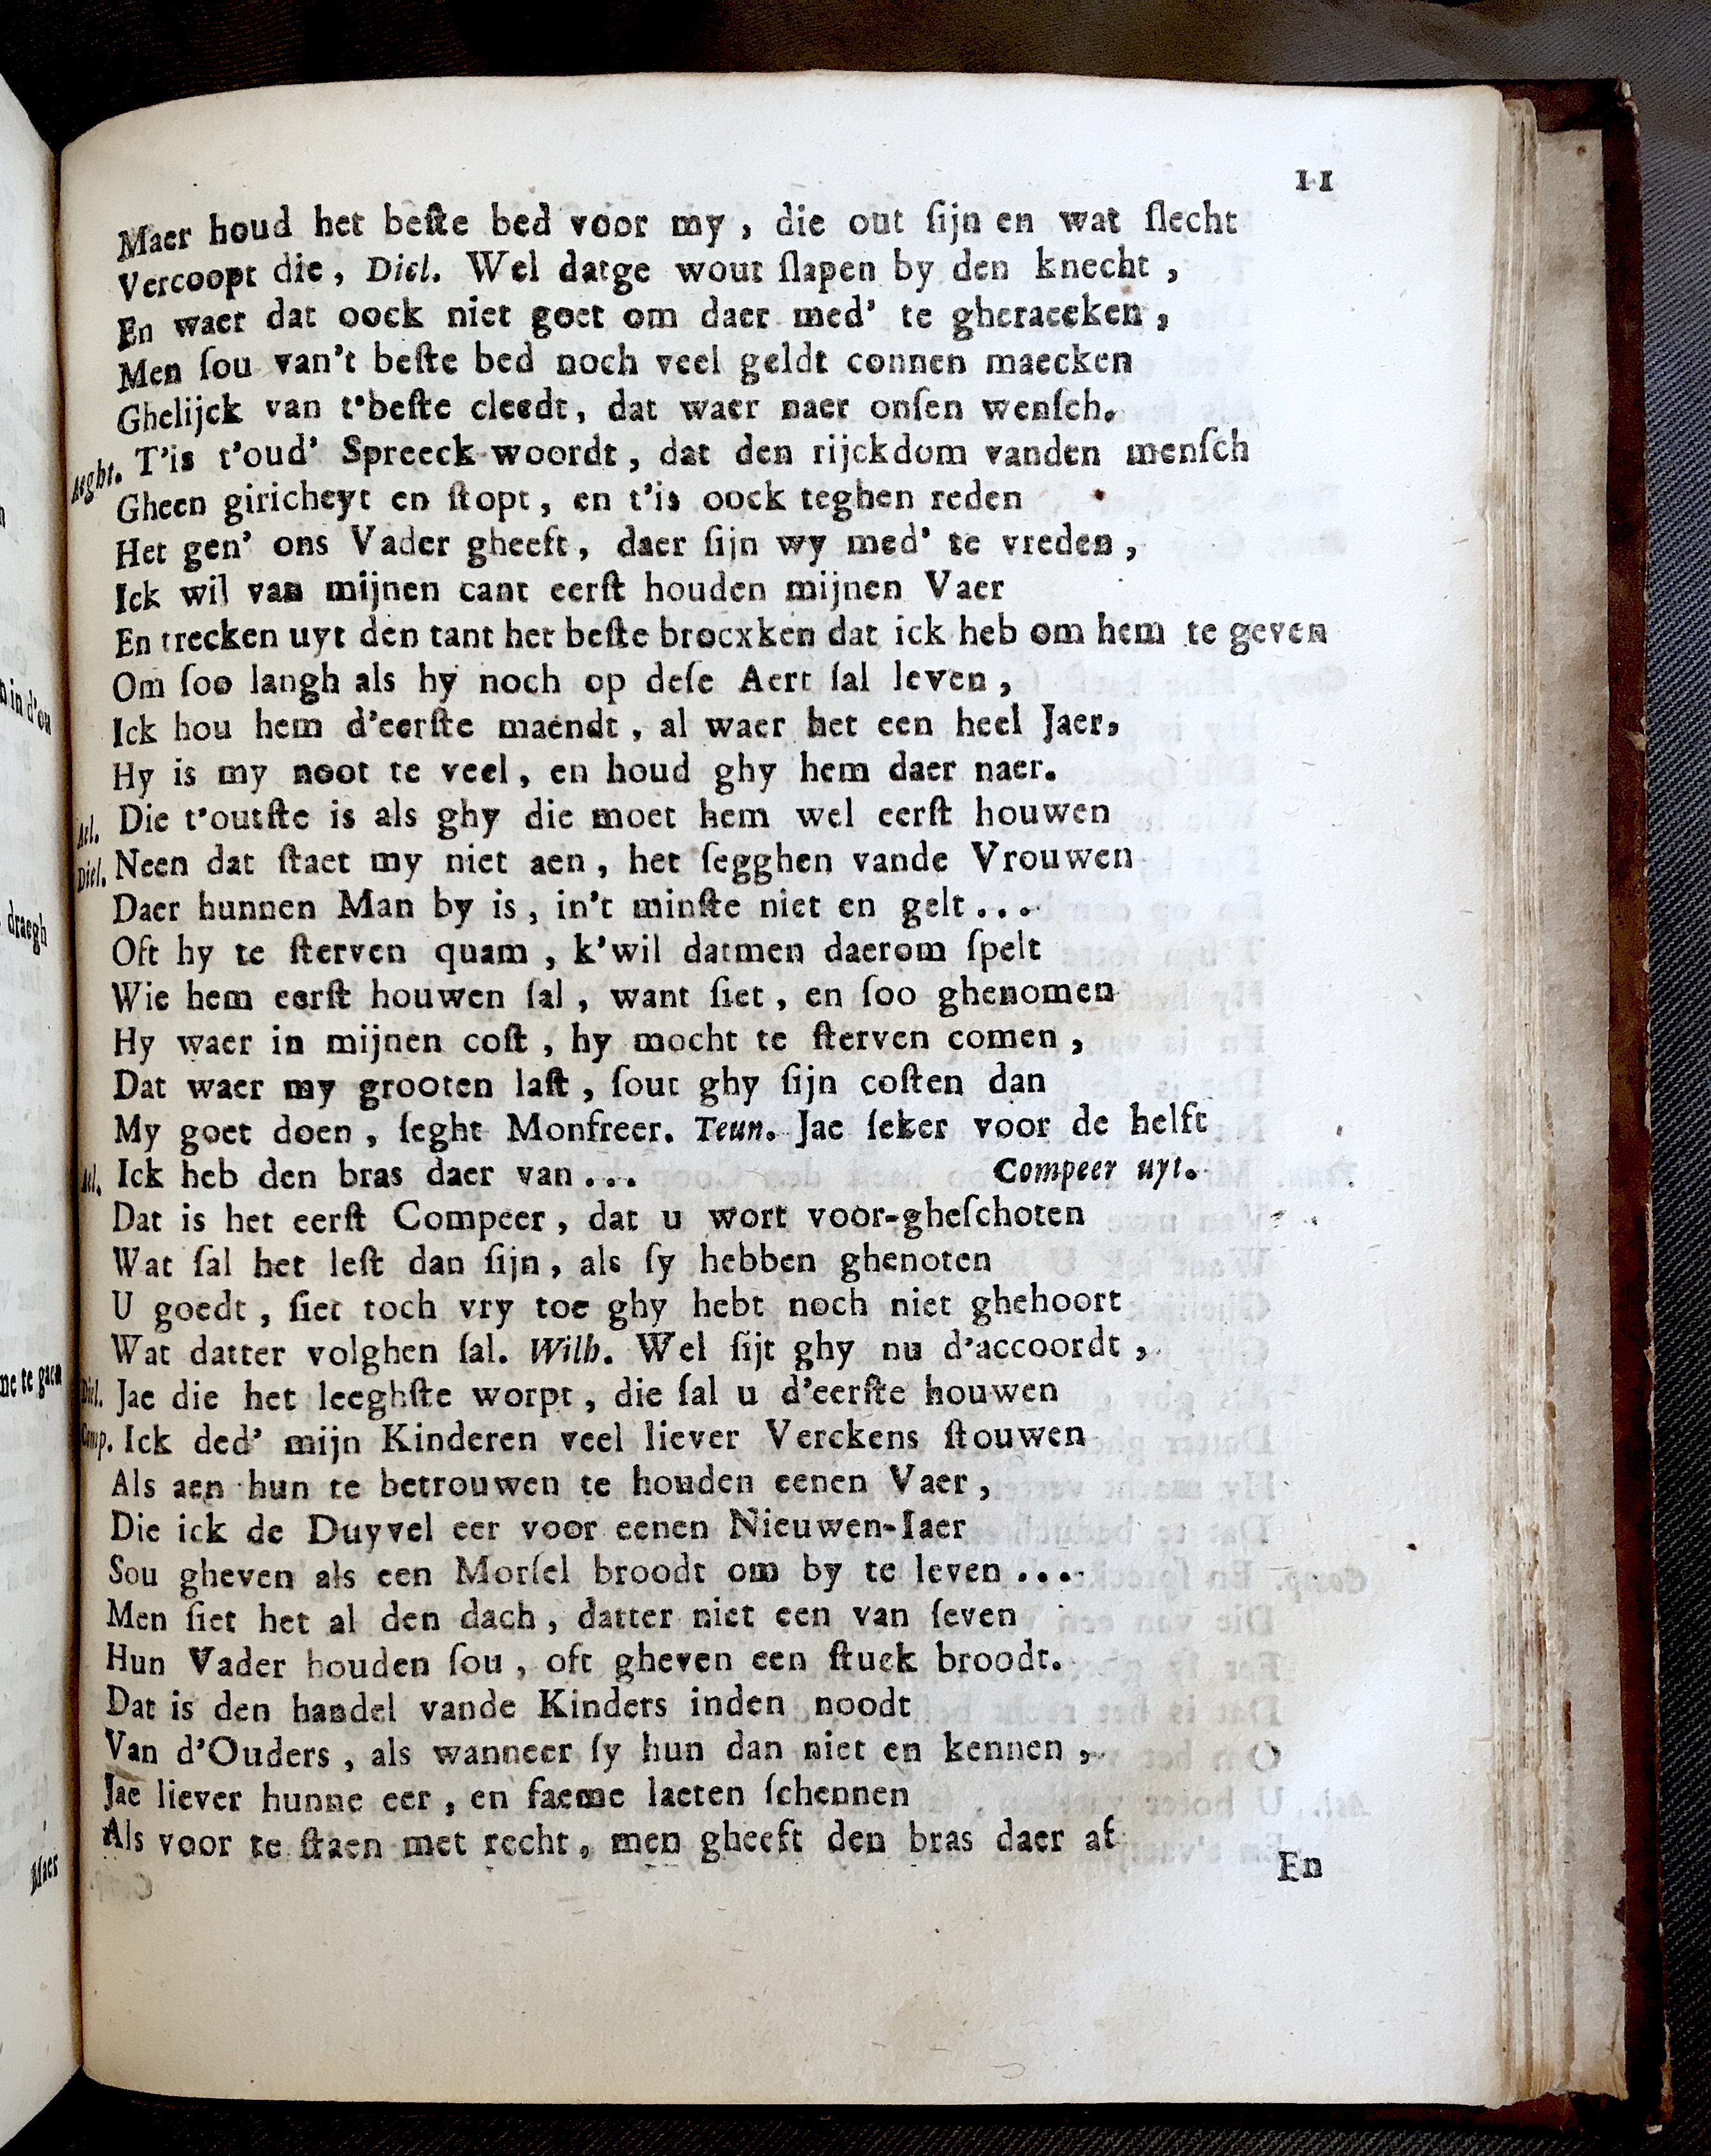 11
Maer houd het beſte bed voor my, die out ſijn en wat ſlecht
Vercoopt die, Diel. Wel datge wout ſlapen by den knecht,
En waer dat oock niet goet om daer med' te gheraecken,
Men ſou van't beſte bed noch veel geldt connen maecken
Ghelijck van t'beſte cleedt, dat waer naer onſen wenſch.
Aeght. T'is t'oud' Spreeck-woordt, dat den rijckdom vanden menſch
Gheen giricheyt en ſtopt, en t'is oock teghen reden
Het gen' ons Vader gheeft, daer ſijn wy med' te vreden,
Ick wil van mijnen cant eerſt houden mijnen Vaer
En trecken uyt den tant het beſte brocxken dat ick heb om hem te geven
Om ſoo langh als hy noch op deſe Aert ſal leven,
Ick hou hem d'eerſte maendt, al waer het een heel Jaer,
Hy is my noot te veel, en houd ghy hem daer naer.
Ael. Die t'outſte is als ghy die moet hem wel eerſt houwen
Diel. Neen dat ſtaet my niet aen, het ſegghen vande Vrouwen
Daer hunnen Man by is, in't minſte niet en gelt...
Oft hy te ſterven quam, k'wil datmen daerom ſpelt
Wie hem eerſt houwen ſal, want ſiet, en ſoo ghenomen
Hy waer in mijnen coſt, hy mocht te ſterven comen,
Dat waer my grooten laſt, ſout ghy ſijn coſten dan
My goet doen, ſeght Monfreer. Teun. Jae ſeker voor de helft
Ael. Ick heb den bras daer van... Compeer uyt.
Dat is het eerſt Compeer, dat u wort voor-gheſchoten
Wat ſal het leſt dan ſijn, als ſy hebben ghenoten
U goedt, ſiet toch vry toe ghy hebt noch niet ghehoort
Wat datter volghen ſal. Wilb. Wel ſijt ghy nu d'accoordt,
Diel. Jae die het leeghſte worpt, die ſal u d'eerſte houwen
Comp. Ick ded' mijn Kinderen veel liever Verckens ſtouwen
Als aen hun te betrouwen te houden eenen Vaer,
Die ick de Duyvel eer voor eenen Nieuwen-Iaer
Sou gheven als een Morſel broodt om by te leven...
Men ſiet het al den dach, datter niet een van ſeven
Hun Vader houden ſou, oft gheven een ſtuck broodt.
Dat is den handel vande Kinders inden noodt
Van d'Ouders, als wanneer ſy hun dan niet en kennen,
Jae liever hunne eer, en faeme laeten ſchennen
Als voor te ſtaen met recht, men gheeft den bras daer af
En
in d'ou
draegh
me te gaen
Maer